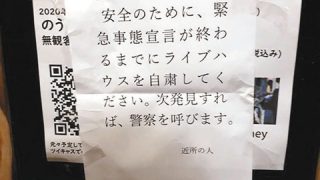 2020年
のう
無観客
安全のために、緊
急事態宣言が終わ
るまでにライブハ
ウスを自粛してく
ださい。次発見すれ
ば、警察を呼びます。
近所の人
込み)
ney
元々予定して
ツイキャスで